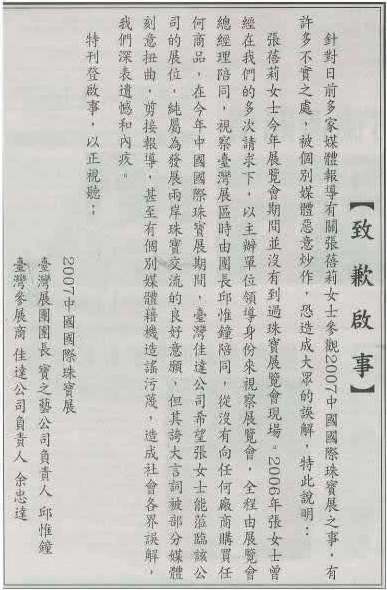 【致歉啟事】
針對日前多家媒體報導有關張蓓莉女士參觀2007中國國際珠寶展之事，有
許多不實之處，被個別媒體惡意炒作，恐造成大眾的誤解，特此說明：
張蓓莉女士今年展覽會期間並沒有到過珠寶展覽會現場。2006年張女士曾
經在我們的多次請求下，以主辦單位領導身份來視察展覽會，全程由展覽會
總經理陪同，視察臺灣展區時由團長邱惟鐘陪同，從沒有向任何廠商購買任
何商品，在今年中國國際珠寶展期間，臺灣佳達公司希望張女士能蒞臨該公
司的展位，純屬為發展兩岸珠寶交流的良好意願，但其誇大言詞被部分媒體
刻意扭曲，剪接報導，甚至有個別媒體藉機造謠污蔑，造成社會各界誤解，
我們深表遺憾和內疚。
特刊登啟事，以正視聽；
2007中國國際珠寶展
臺灣展團團長 寶之藝公司負責人 邱惟鐘
臺灣參展商 佳達公司負責人 余忠達